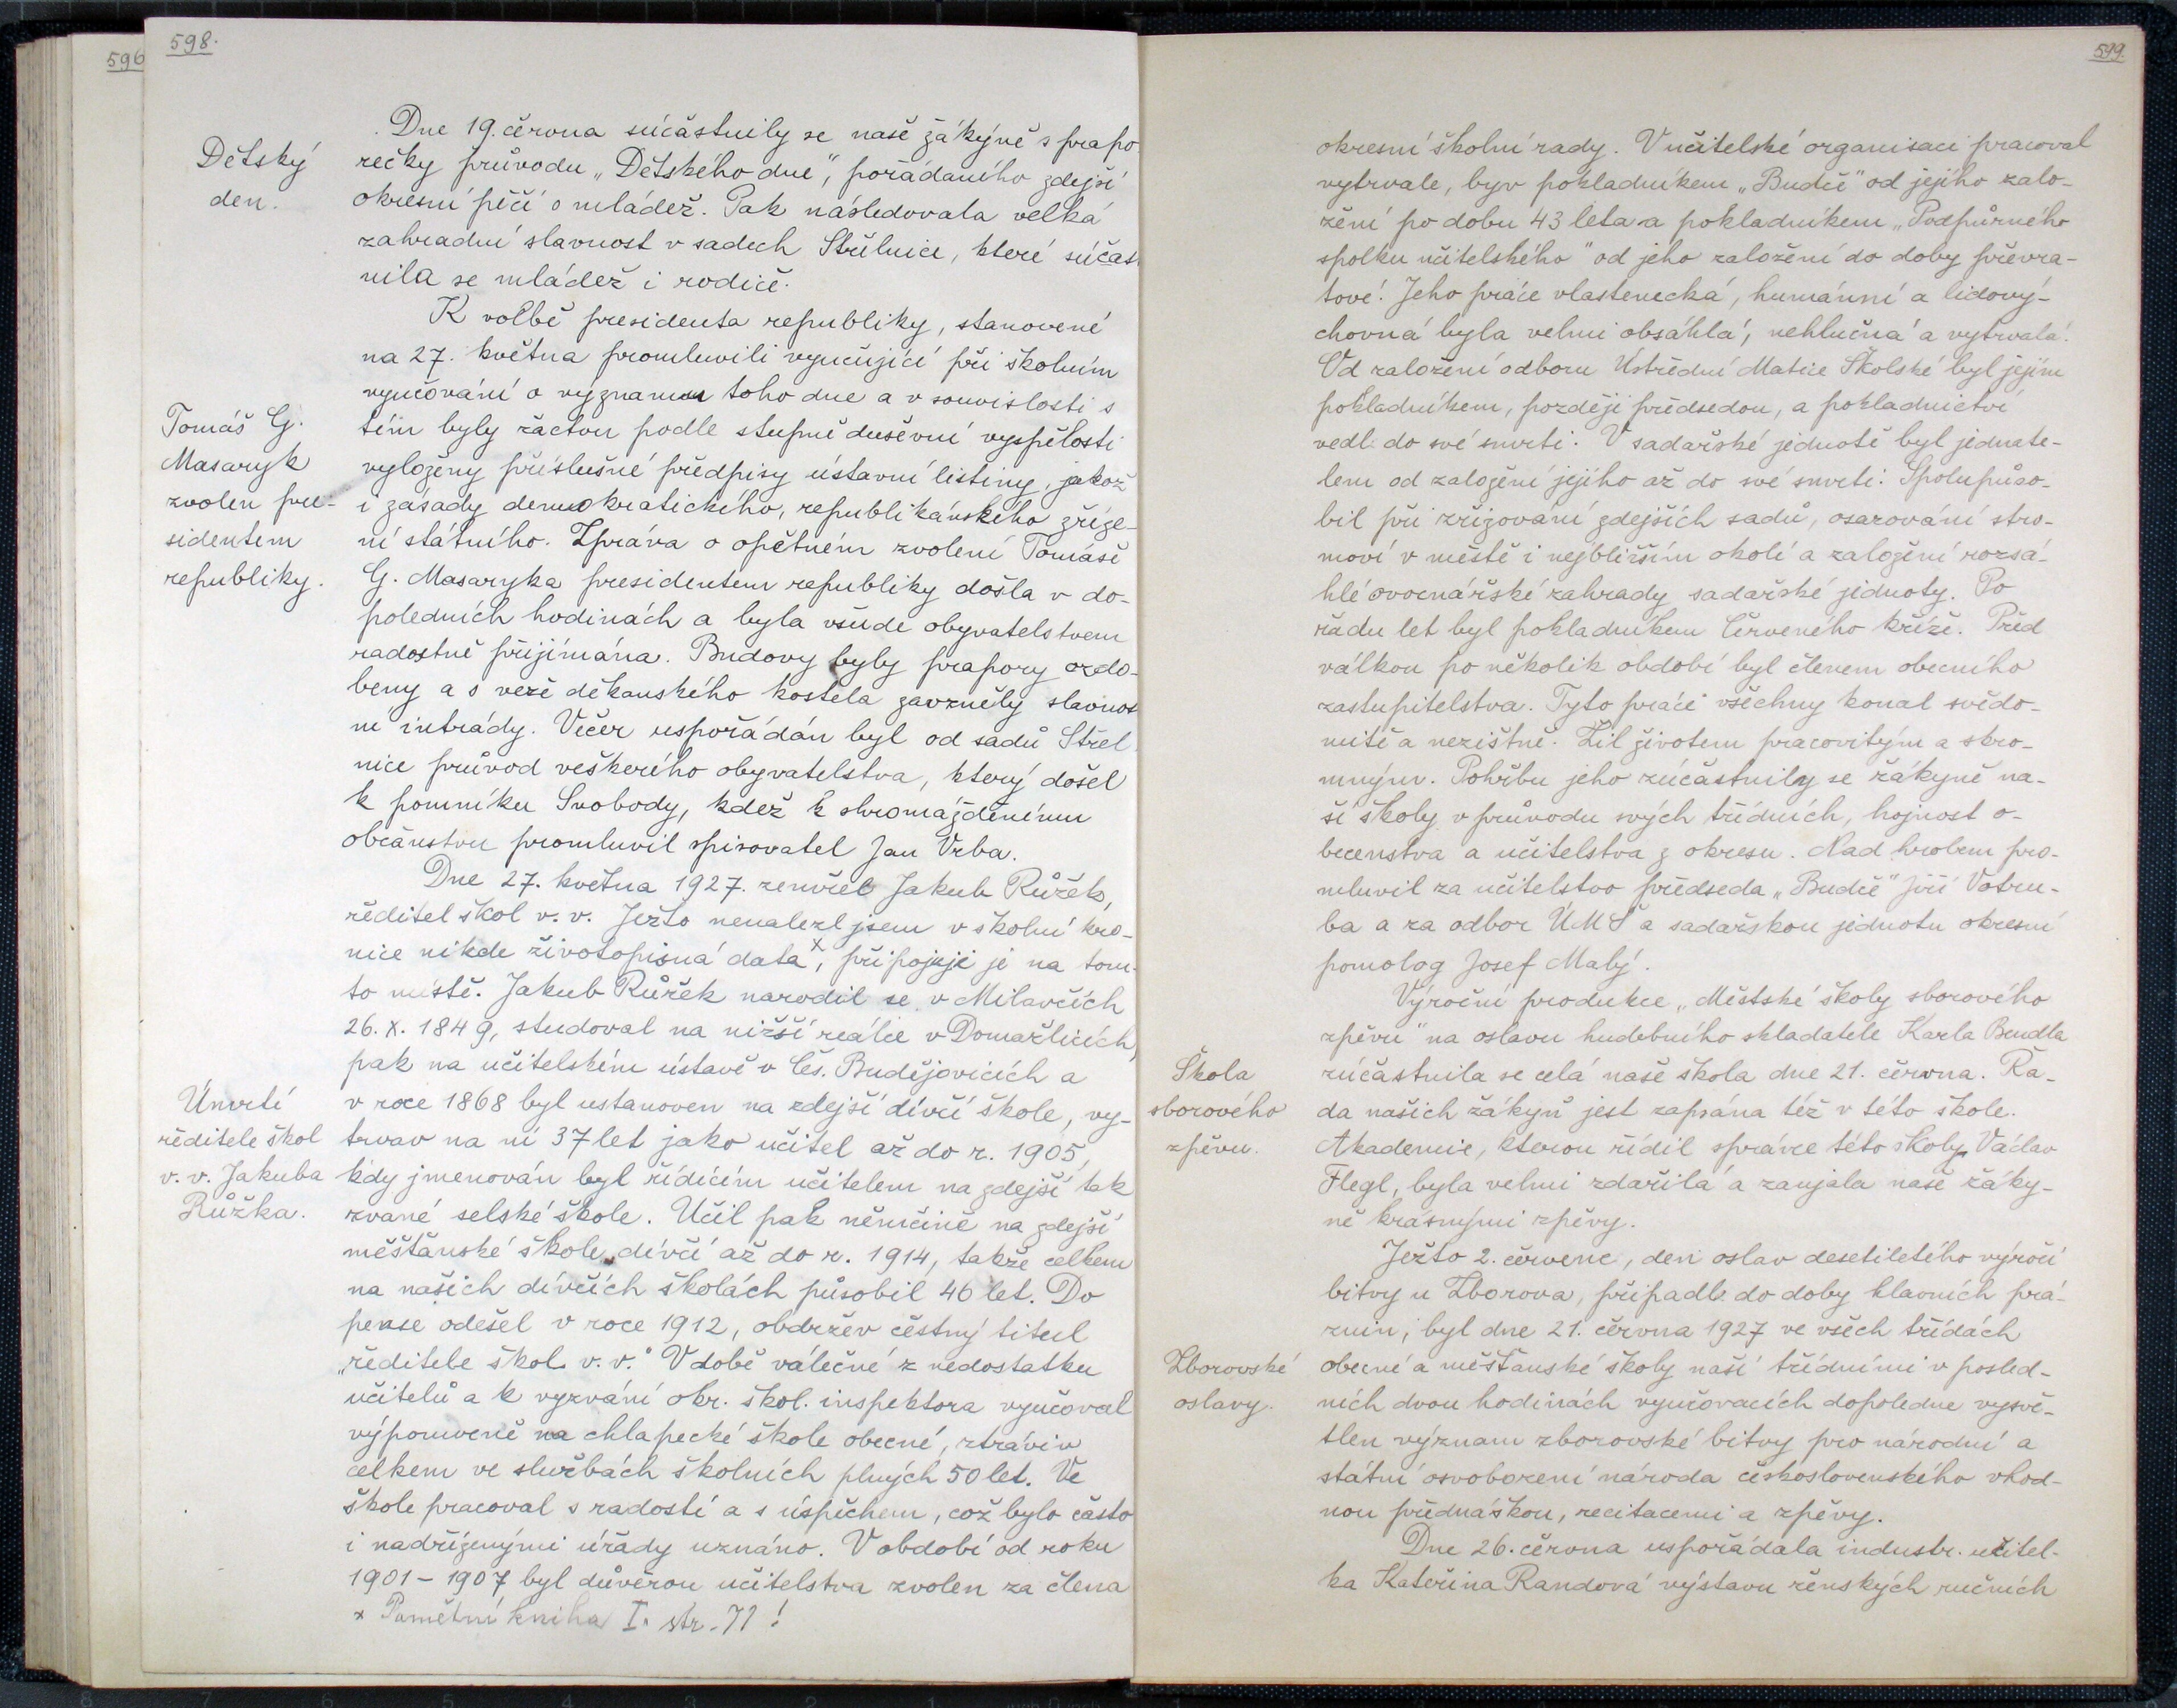 596
598.
Dětský
den.
Dne 19. června súčastnily se naše žákyně s prapo-
rečky průvodu „Dětského dne“, pořádaného zdejší
okresní péčí o mládež. Pak následovala velká
zahradní slavnost v sadech Střelnice, které súčast
nila se mládež i rodiče.
K volbě presidenta republiky, stanovené
na 27. května promluvili vyučující při školním
vyučování o významu toho dne a v souvislosti s
Tomáš G.
Masaryk
zvolen pre-
sidentem
republiky.
tím byly žactvu podle stupně duševní vyspělosti
vyloženy příslušné předpisy ústavní listiny, jakož
i zásady demokratického, republikánského zříze-
ní státního. Zpráva o opětném zvolení Tomáše
G. Masaryka presidentem republiky došla v do-
poledních hodinách a byla všude obyvatelstvem
radostně přijímána. Budovy byly prapory ozdo-
beny a s veže děkanského kostela zavzněly slavnost
ní intrády. Večer uspořádán byl od sadů Střel
nice průvod veškerého obyvatelstva, který došel
k pomníku Svobody, kdež k shromážděnému
občanstvu promluvil spisovatel Jan Vrba.
Dne 27. května 1927. zemřel Jakub Růžek,
ředitel škol v. v. Ježto nenalezl jsem v školní kro-
nice nikde životopisná data x, připojuji je na tom-
to místě. Jakub Růžek narodil se v Milavčích
26. X. 1849, studoval na nižší reálce v Domažlicích,
pak na učitelském ústavě v Čes. Budějovicích a
Úmrtí
ředitele škol
v. v. Jakuba
Růžka.
v roce 1868 byl ustanoven na zdejší dívčí škole, vy-
trvav na ní 37 let jako učitel až do r. 1905,
kdy jmenován byl řídícím učitelem na zdejší tak
zvané selské škole. Učil pak němčině na zdejší
měšťanské škole dívčí až do r. 1914, takže celkem
na našich dívčích školách působil 46 let. Do
pense odešel v roce 1912, obdržev čestný titul
„ředitele škol v. v.“ V době válečné z nedostatku
učitelů a k vyzvání okr. škol. inspektora vyučoval
výpomocně na chlapecké škole obecné, ztráviv
celkem ve službách školních plných 50 let. Ve
škole pracoval s radostí a s úspěchem, což bylo často
i nadřízenými úřady uznáno. V období od roku
1901 – 1907 byl důvěrou učitelstva zvolen za člena
x Pamětní kniha I. str. 71!
599.
okresní školní rady. V učitelské organisaci pracoval
vytrvale, byv pokladníkem „Budče“ od jejího zalo-
žení po dobu 43 léta a pokladníkem „Podpůrného
spolku učitelského“ od jeho založení do doby převra-
tové. Jeho práce vlastenecká, humánní a lidový-
chovná byla velmi obsáhlá, nehlučná a vytrvalá.
Od založení odboru Ústřední Matice Školské byl jejím
pokladníkem, později předsedou, a pokladnictví
vedl do své smrti. V sadařské jednotě byl jednate-
lem od založení jejího až do své smrti. Spolupůso-
bil při zřizování zdejších sadů, osazování stro-
moví v městě i nejbližším okolí a založení rozsá-
hlé ovocnářské zahrady sadařské jednoty. Po
řadu let byl pokladníkem Červeného kříže. Před
válkou po několik období byl členem obecního
zastupitelstva. Tyto práce všechny konal svědo-
mitě a nezištně. Žil životem pracovitým a skro-
mným. Pohřbu jeho zúčastnily se žákyně na-
ší školy v průvodu svých třídních, hojnost o-
becenstva a učitelstva z okresu. Nad hrobem pro-
mluvil za učitelstvo předseda „Budče“ Jiří Votru-
ba a za odbor ÚMŠ a sadařskou jednotu okresní
pomolog Josef Malý.
Výroční produkce „Městské školy sborového
zpěvu“ na oslavu hudebního skladatele Karla Bendla
Škola
sborového
zpěvu.
zúčastnila se celá naše škola dne 21. června. Řa-
da našich žákyň jest zapsána též v této škole.
Akademie, kterou řídil správce této školy Václav
Flegl, byla velmi zdařilá a zaujala naše žáky-
ně krásnými zpěvy.
Ježto 2. červenec, den oslav desetiletého výročí
bitvy u Zborova, připadl do doby hlavních prá-
znin, byl dne 21. června 1927 ve všech třídách
Zborovské
oslavy.
obecné a měšťanské školy naší třídními v posled-
ních dvou hodinách vyučovacích dopoledne vysvě-
tlen význam zborovské bitvy pro národní a
státní osvobození národa československého vhod-
nou přednáškou, recitacemi a zpěvy.
Dne 26. června uspořádala industr. učitel-
ka Kateřina Randová výstavu ženských ručních